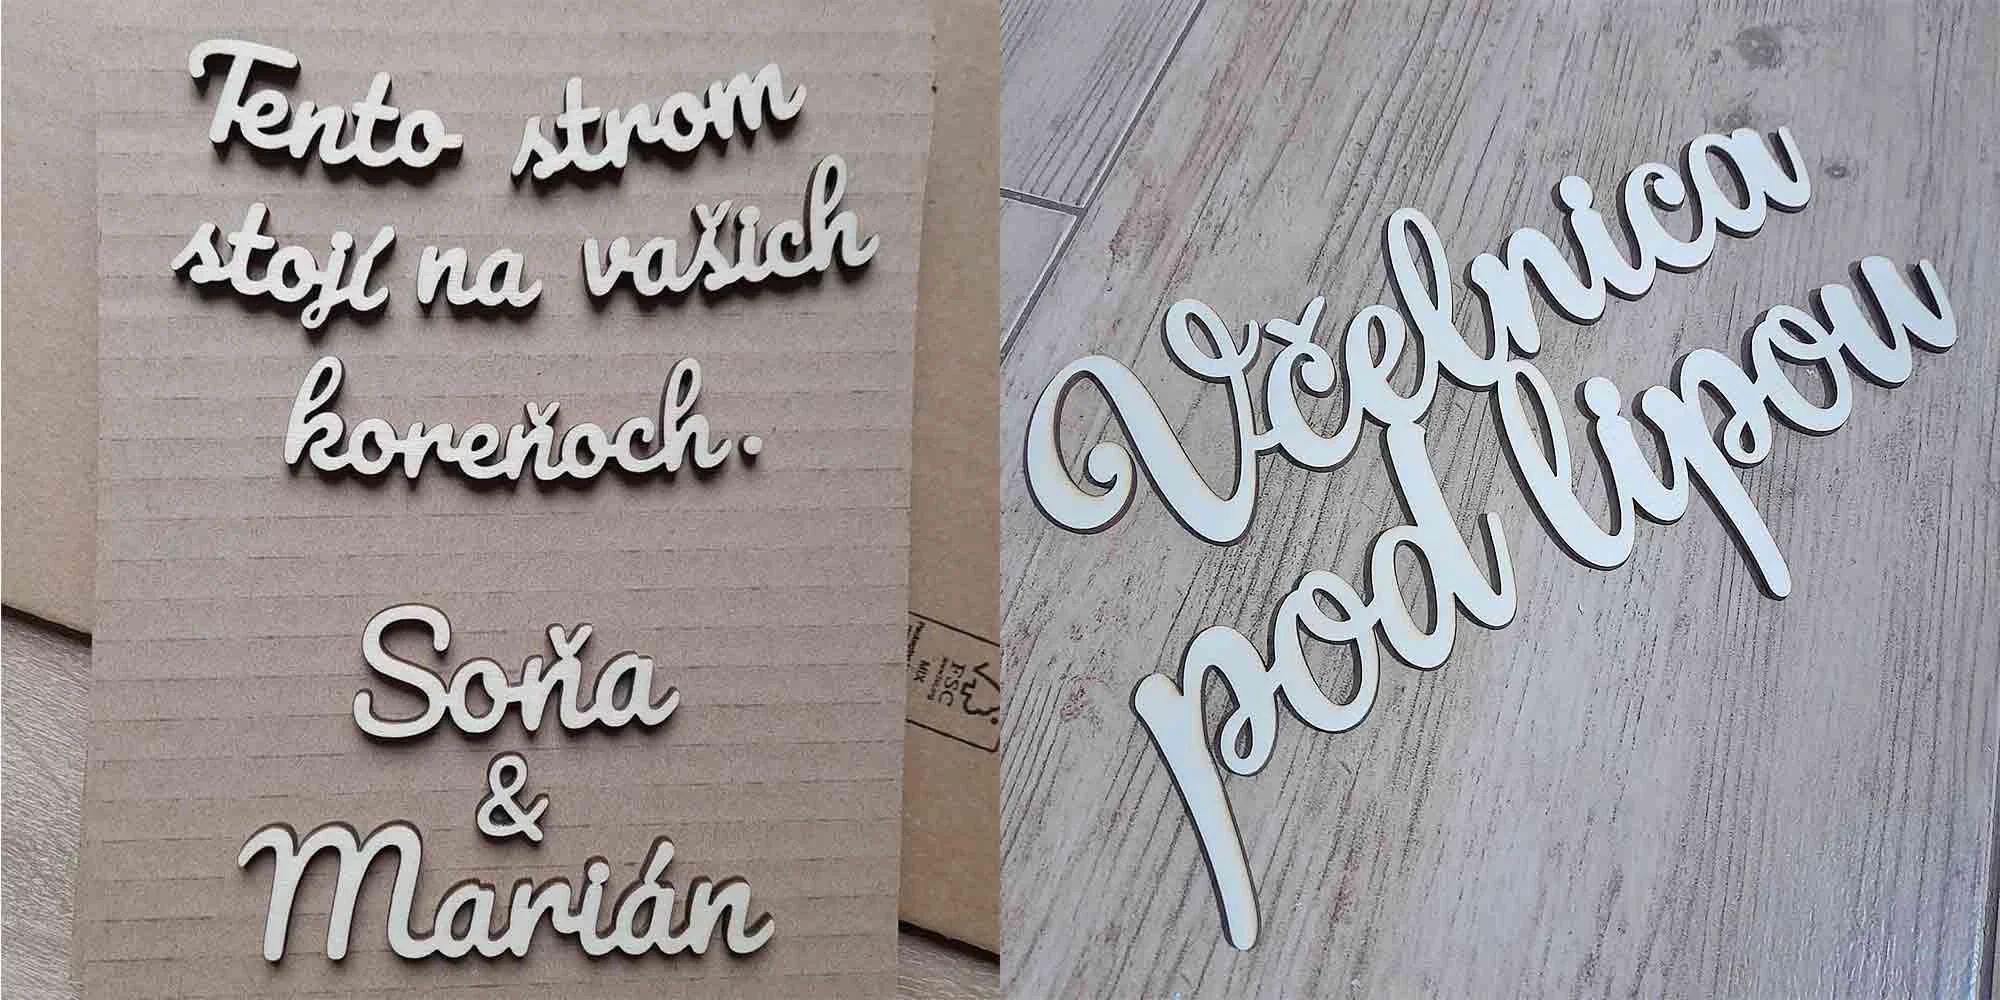 Tento strom
stojí na vašich
koreňoch.
Soňa
&
Marián
MIX
FSC
Včelnica
pod lipou